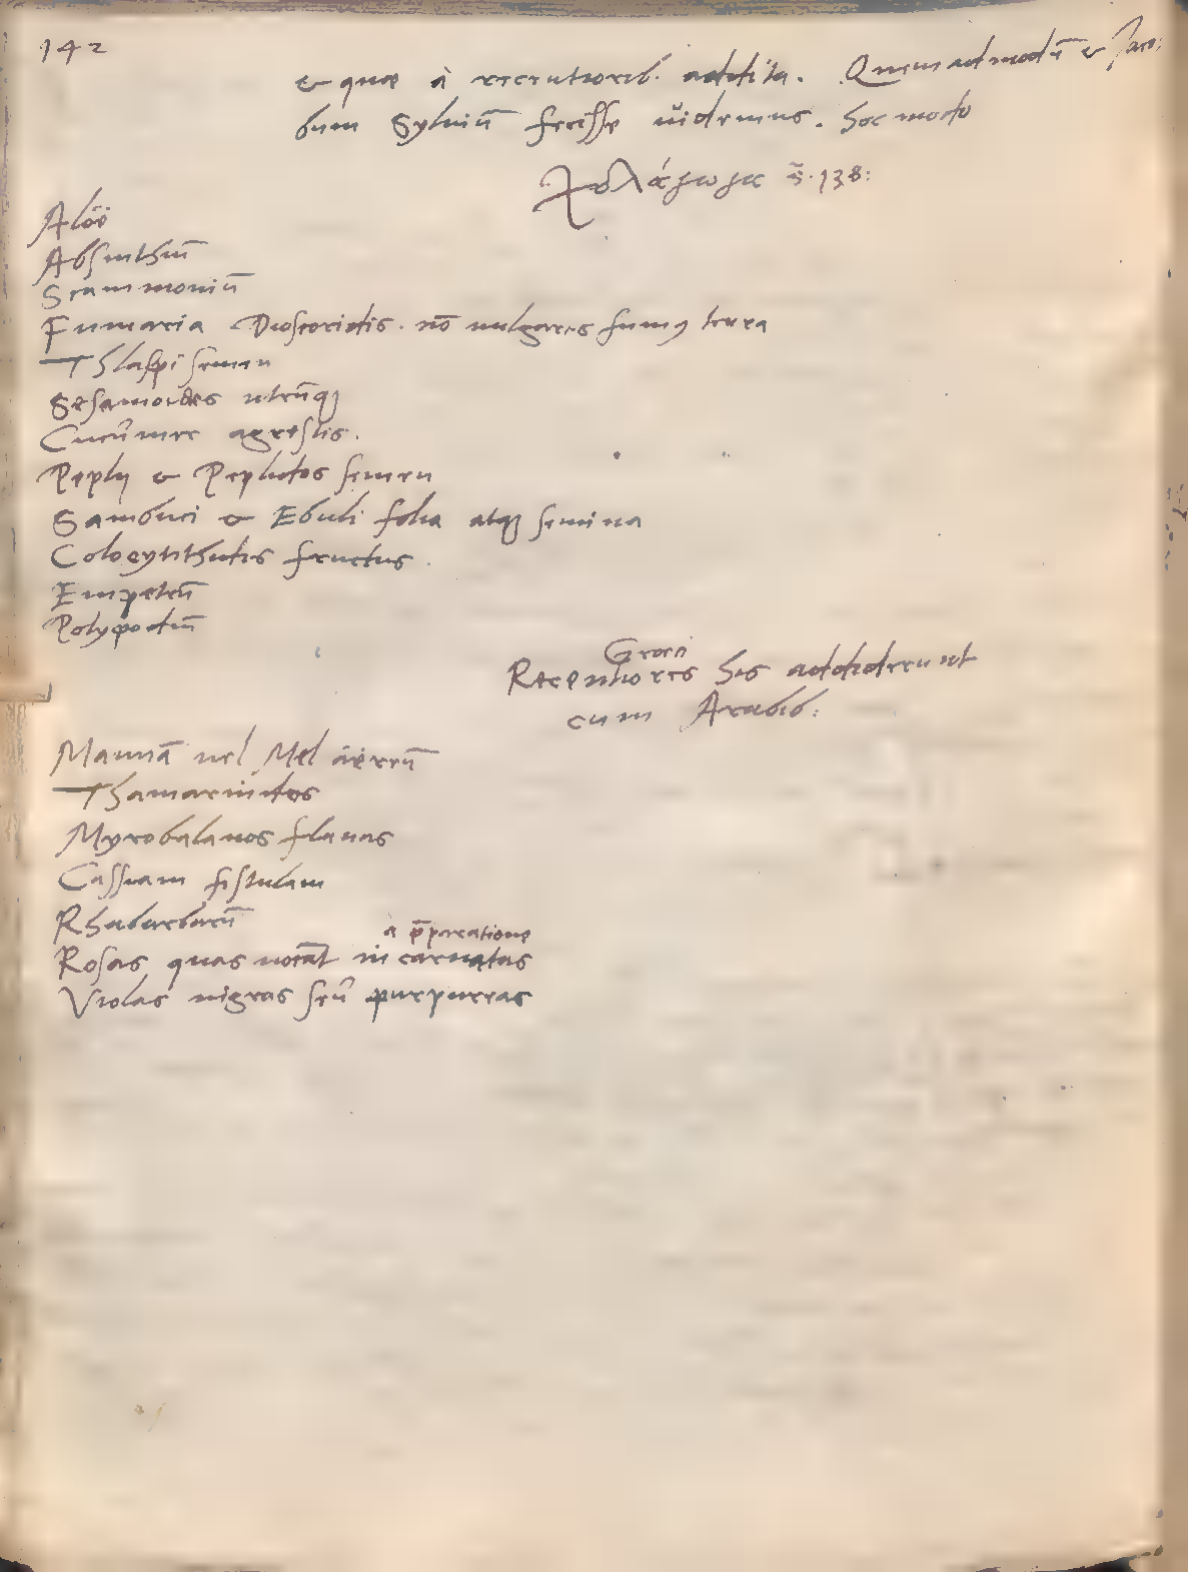 142
& quæ à recentiorib. addita. Quemadmodū & Jaco:
bum Sylviū fecisse videmus. hoc modo
Χολάγωγα s̄. 138:
Aloë
Absinthiū
Scammoniū
Fumaria Dioscoridis. nō vulgaris fumꝰ terræ
Thlaspi semen
Sesamoides utrūqȝ
Cucūmer agrestis.
Peply & Peplidos semen
Sambuci & Ebuli folia atqȝ semina
Colocynthidis fructus.
Empetrū
Polypodiū
Recentiores Græci his addiderunt
cum Arabib:
Mannā vel Mel äereū
Thamarindos
Myrobalanos flavas
Cassiam fistulam
Rhabarbarū
Rosas quas vocāt incarnatas à p̄paratione
Violas nigras seu purpureas